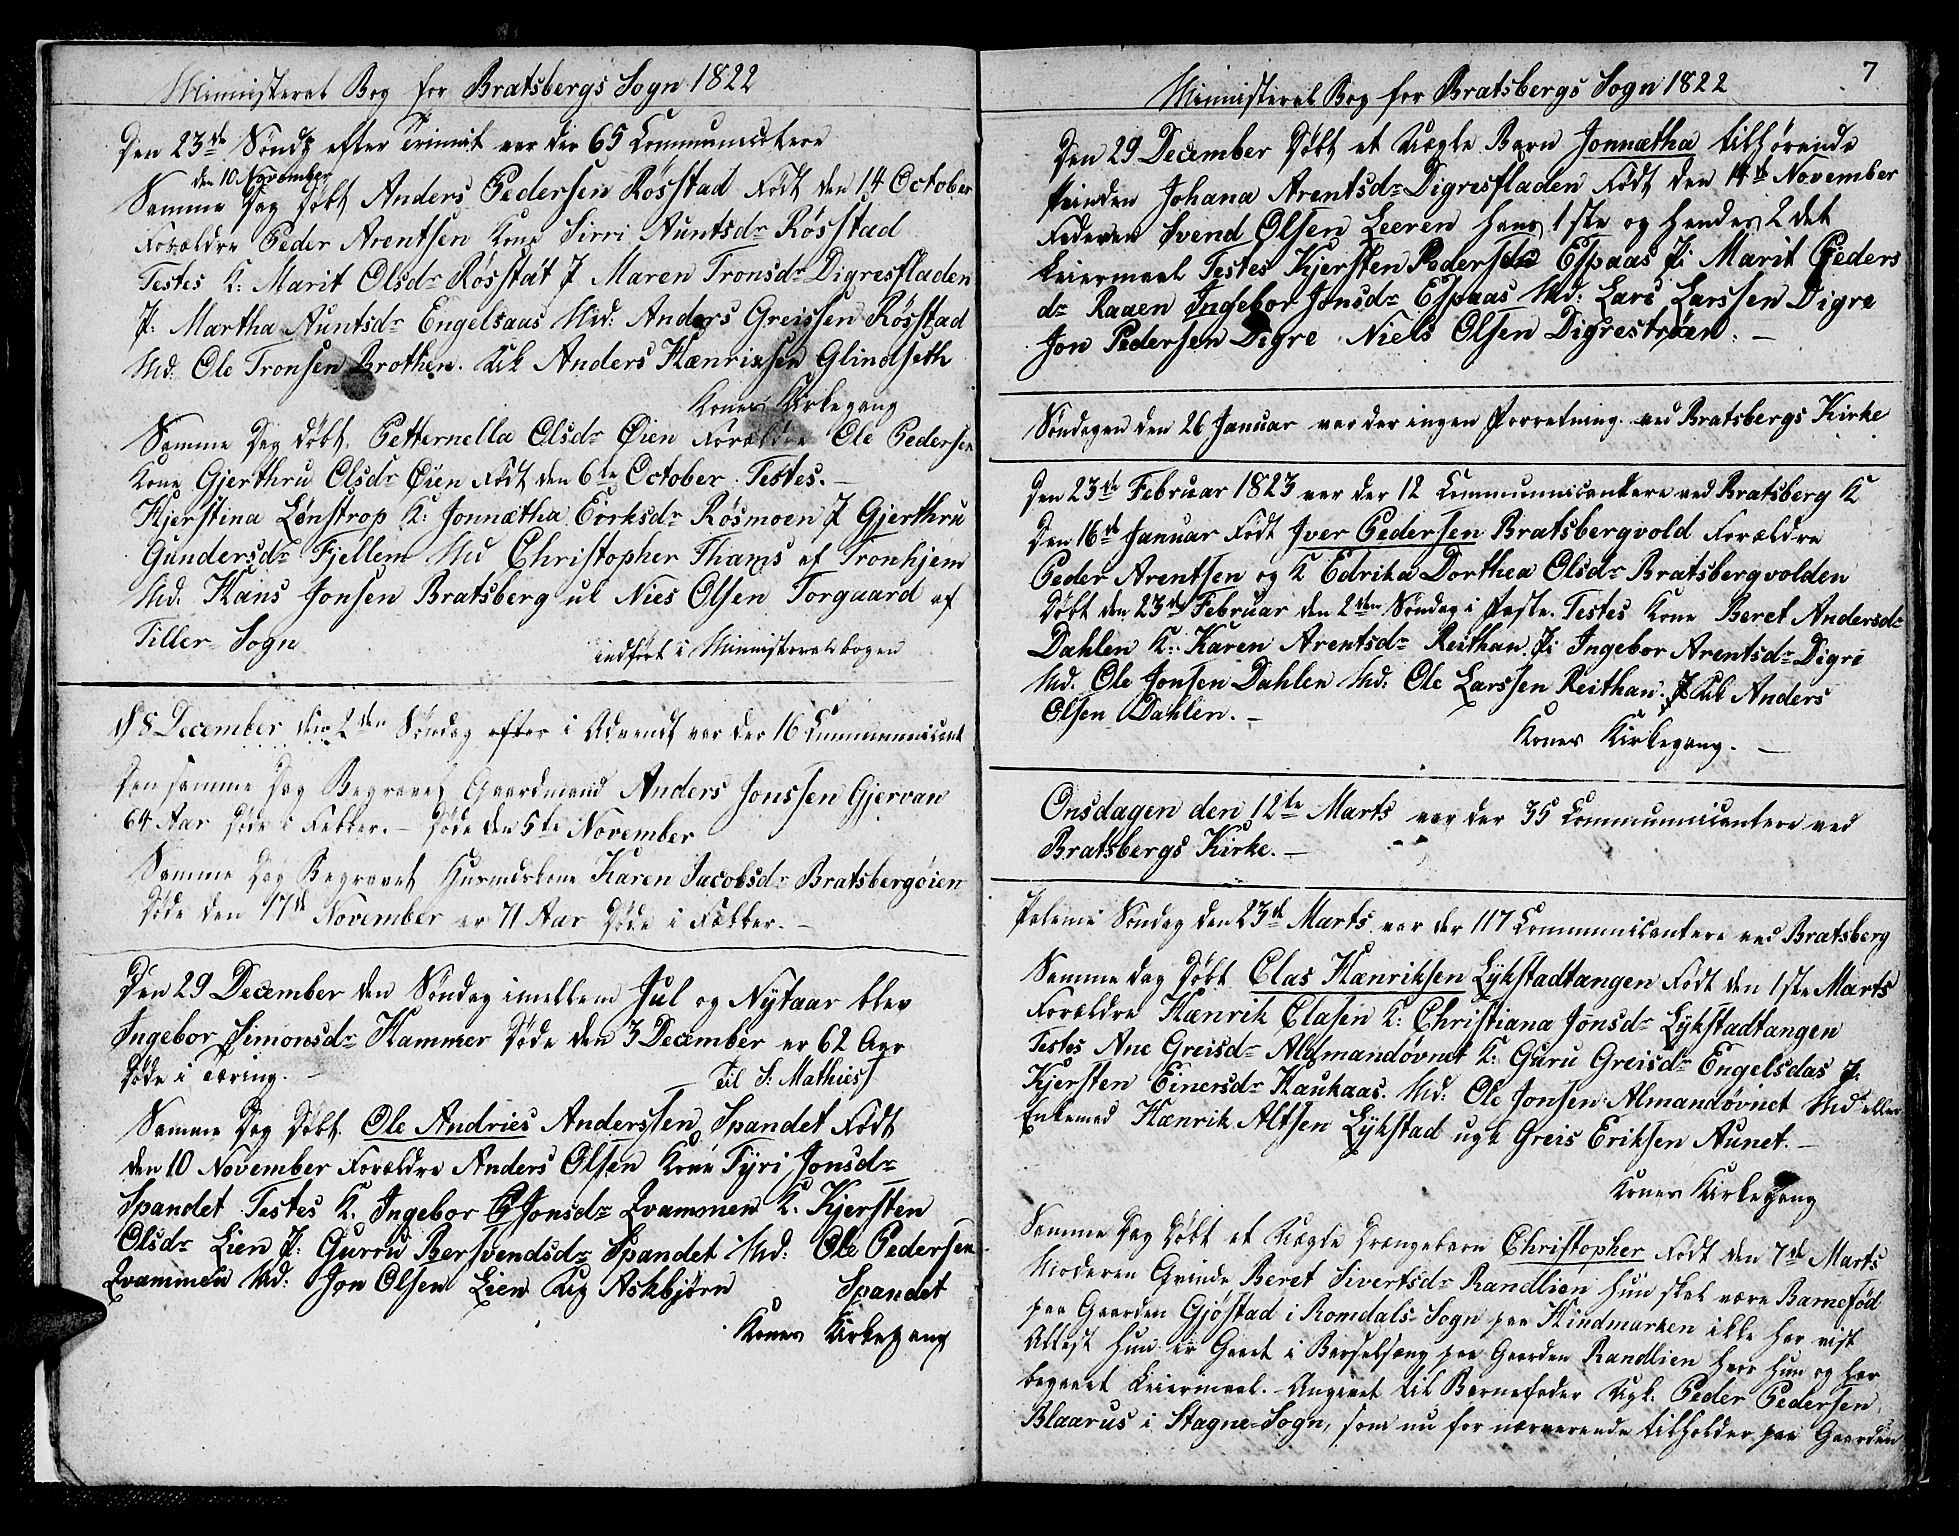 Ministeral Bog for Bratsbergs Sogn 1822
Den 23de Søndg efter Trinnit var der 65 Communicatere
den 10 November
Samme Dag Døbt Anders Pedersen Røsstad Født den 14 October
Forældre Peder Arentsen Kone Sirri Auntsdr Røsstad
Testes K: Marit Olsdr Røsstat P Maren Tronsdr Digresfladen
P: Martha Auntsdr Engelsaas Md: Anders Greissen Røsstad
Md: Ole Tronsen Brothen. Uk Anders Hænrixsen Glindseth
Koner Kirkegang
Samme Dag døbt Petternella Olsdr Øien Forældre Ole Pedersen
Kone Gjerthru Olsdr Øien Født den 6te October. Testes.
Kjerstina Lønstrop K: Jonnætha Eirksdr Røsmoen P Gjerthru
Gundersdr Fjellem Md Christopher Thams af Tronhjem
Md. Hans Jonsen Bratsberg uk Nies Olsen Torgaard af
Tiller Sogn
indført i Ministeralbogen
d 8 December den 2den Søndag efter i Advendt var der 16 Cummunnicant
Den samme Dag Begravet Gaardmand Anders Jonssen Gjervan
64 Aar Døde i Fekter. – Døde den 5te November
Samme Dag Begravet Huusmdskone Karen Jacobsdr Bratsbergøien
Døde den 17de November er 71 Aar Døde i Fekter. –
Den 29 December den Søndag imellem Jul og Nytaar blev
Ingebor Simonsdr Hammer Døde den 3 December er 62 Aar
Døde i Tæring. –
Til S: Mathies
Samme Dag Døbt Ole Andries Anderssen Spandet Født
den 10 November Forældre Anders Olsen Kone Tyri Jonsdr
Spandet Testes K. Ingebor Jonsdr Qvammen K. Kjersten
Olsdr Lien P: Gurru Bersvendsdr Spandet Md: Ole Pedersen
Qvammen Md: Jon Olsen Lien Ug Askbjørn Spandet
Koner Kirkegang
7
Ministeral Bog for Bratsbergs Sogn 1822
Den 29 December Døbt et Uægte Barn Jonnætha tilhørende
Qvinden Johana Arentsdr Digresfladen Født den 14de November
Faderen Svend Olsen Leeren hans 1ste og hendes 2det
Leiermaal Testes Kjersten Pedersdr Espaas P: Marit Peders
dr Raaen Ingebor Jonsdr Espaas Md: Lars Larssen Digre
Jon Pedersen Digre Niels Olsen Digrestrøen. –
Søndagen den 26 Januar var der ingen Forretning ved Bratsbergs Kirke
Den 23de Februar 1823 var der 12 Communnicantere ved Bratsberg K
Den 16de Januar Født Iver Pedersen Bratsbergvold Forældre
Peder Arentsen og K Edrika Dorthea Olsdr Bratsbergvolden
Døbt den 23de Februar den 2den Søndag i Faste. Testes Kone Beret Andersdr
Dahlen K: Karen Arentsdr Reithan P: Ingebor Arentsdr Digre
Md. Ole Jonsen Dahlen Md. Ole Larssen Reithan. Uk Anders
Olsen Dahlen. –
Koner Kirkegang. –
Onsdagen den 12te Marts var der 35 Communnicantere ved
Bratsbergs Kirke. –
Palme Søndag den 23de Marts var der 117 Communicantere ved Bratsberg
Samme dag Døbt Clas Hænriksen Lykstadtangen Født den 1ste Marts
Forældre Hænrik Clasen K: Christiana Jonsdr Lykstadtangen
Testes Ane Greisdr Almandøvnet K: Guru Greisdr Engelsdas P:
Kjersten Einersdr Haukaas. Md: Ole Jonsen Almandøvnet Md eller
Enkemad Hænrik Altsen Lykstad ugk Greis Eriksen Aunet. –
Koner Kirkegang
Samme Dag Døbt et Uægte Drængebarn Christopher Født den 7de Marts
Moderen Qvinde Beret Sivertsdr Randlien hun skal være Barnefød
paa Gaarden Gjøstad i Romdals Sogn paa Hindmarken ikke har vist
Attest Hun er Gaaet i Barselsæng paa Gaarden Randlien hvor hun og har
begaaet Leiermaal. Angivet til Barnefader Ugk. Peder Pedersen
Blaarus i Stagne-Sogn, som nu for nærværende tilholder paa Gaarden